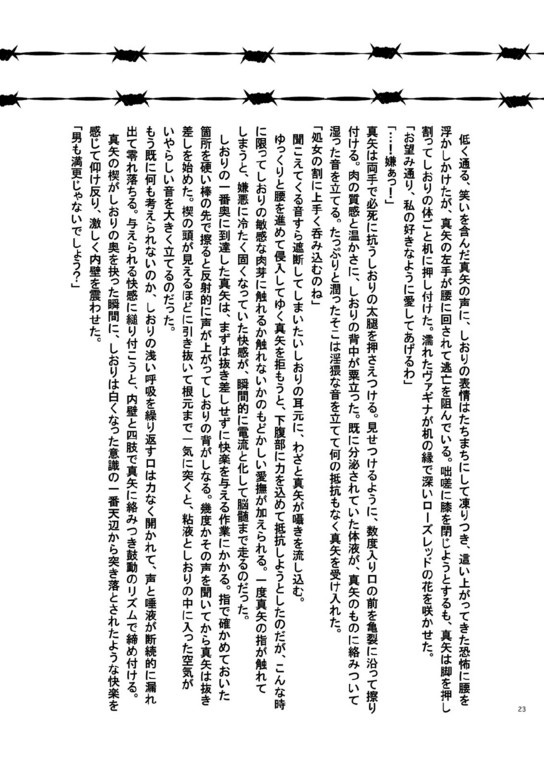 低く通る、笑いを含んだ真矢の声に、しおりの表情はたちまちにして凍りつき、這い上がってきた恐怖に腰を
浮かしかけたが、真矢の左手が腰に回されて逃亡を阻んでいる。咄嗟に膝を閉じようとするも、真矢は脚を押し
割ってしおりの体ごと机に押し付けた。濡れたヴァギナが机の縁で深いローズレッドの花を咲かせた。
「お望み通り、私の好きなように愛してあげるわ」
「…！嫌ぁっ！」
真矢は両手で必死に抗うしおりの太腿を押さえつける。見せつけるように、数度入り口の前を亀裂に沿って擦り
付ける。肉の質感と温かさに、しおりの背中が粟立った。既に分泌されていた体液が、真矢のものに絡みついて
湿った音を立てる。たっぷりと潤ったそこは淫猥な音を立てて何の抵抗もなく真矢を受け入れた。
「処女の割に上手く呑み込むのね」
聞こえてくる音すら遮断してしまいたいしおりの耳元に、わざと真矢が囁きを流し込む。
ゆっくりと腰を進めて侵入してゆく真矢を拒もうと、下腹部に力を込めて抵抗しようとしたのだが、こんな時
に限ってしおりの敏感な肉芽に触れるか触れないかのもどかしい愛撫が加えられる。一度真矢の指が触れて
しまうと、嫌悪に冷たく固くなっていた快感が、瞬間的に電流と化して脳髄まで走るのだった。
しおりの一番奥に到達した真矢は、まずは抜き差しせずに快楽を与える作業にかかる。指で確かめておいた
箇所を硬い棒の先で擦ると反射的に声が上がってしおりの背がしなる。幾度かその声を聞いてから真矢は抜き
差しを始めた。楔の頭が見えるほどに引き抜いて根元まで一気に突くと、粘液としおりの中に入った空気が
いやらしい音を大きく立てるのだった。
もう既に何も考えられないのか、しおりの浅い呼吸を繰り返す口は力なく開かれて、声と唾液が断続的に漏れ
出て零れ落ちる。与えられる快感に縋り付こうと、内壁と四肢で真矢に絡みつき鼓動のリズムで締め付ける。
真矢の楔がしおりの奥を抉った瞬間に、しおりは白くなった意識の一番天辺から突き落とされたような快楽を
感じて仰け反り、激しく内壁を震わせた。
「男も満更じゃないでしょう？」
23